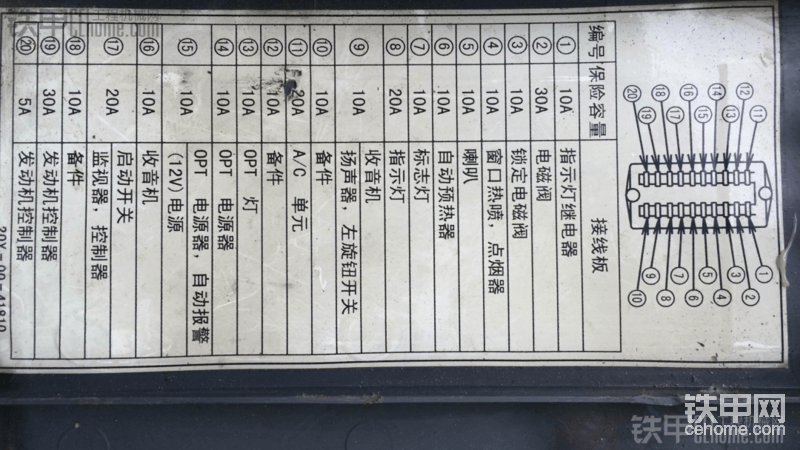 ⑳ ⑲ ⑱ ⑰ ⑯ ⑮ ⑭ ⑬ ⑫ ⑪
⑩ ⑨ ⑧ ⑦ ⑥ ⑤ ④ ③ ② ①
编号 保险容量 接线板
① 10A 指示灯继电器
② 30A 电磁阀
③ 10A 锁定电磁阀
④ 10A 窗口热喷，点烟器
⑤ 10A 喇叭
⑥ 10A 自动预热器
⑦ 10A 标志灯
⑧ 20A 指示灯
⑨ 10A 收音机
扬声器，左旋钮开关
⑩ 10A 备件
⑪ 20A A/C 单元
⑫ 10A 备件
⑬ 10A OPT 灯
⑭ 10A OPT 电源器
⑮ 10A OPT 电源器，自动报警
(12V)电源
⑯ 10A 收音机
⑰ 20A 启动开关
监视器，控制器
⑱ 10A 备件
⑲ 30A 发动机控制器
⑳ 5A 发动机控制器
铁甲网
cehome.com